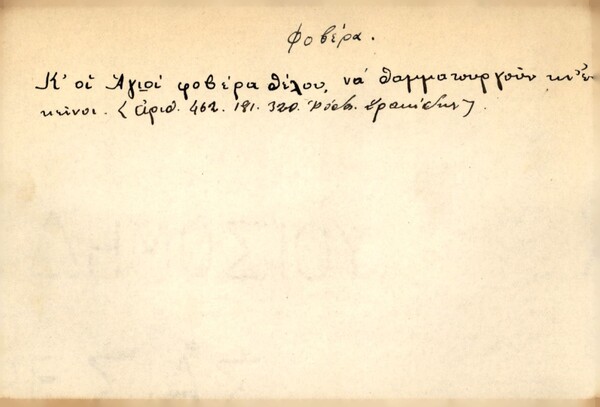 Φοβέρα.
Κ' οἱ Ἅγιοί φοβέρα θέλου, νά θαμματουργοῦν κι' ἐ-
κεῖνοι. (ἀριθ. 462. 181. 320.